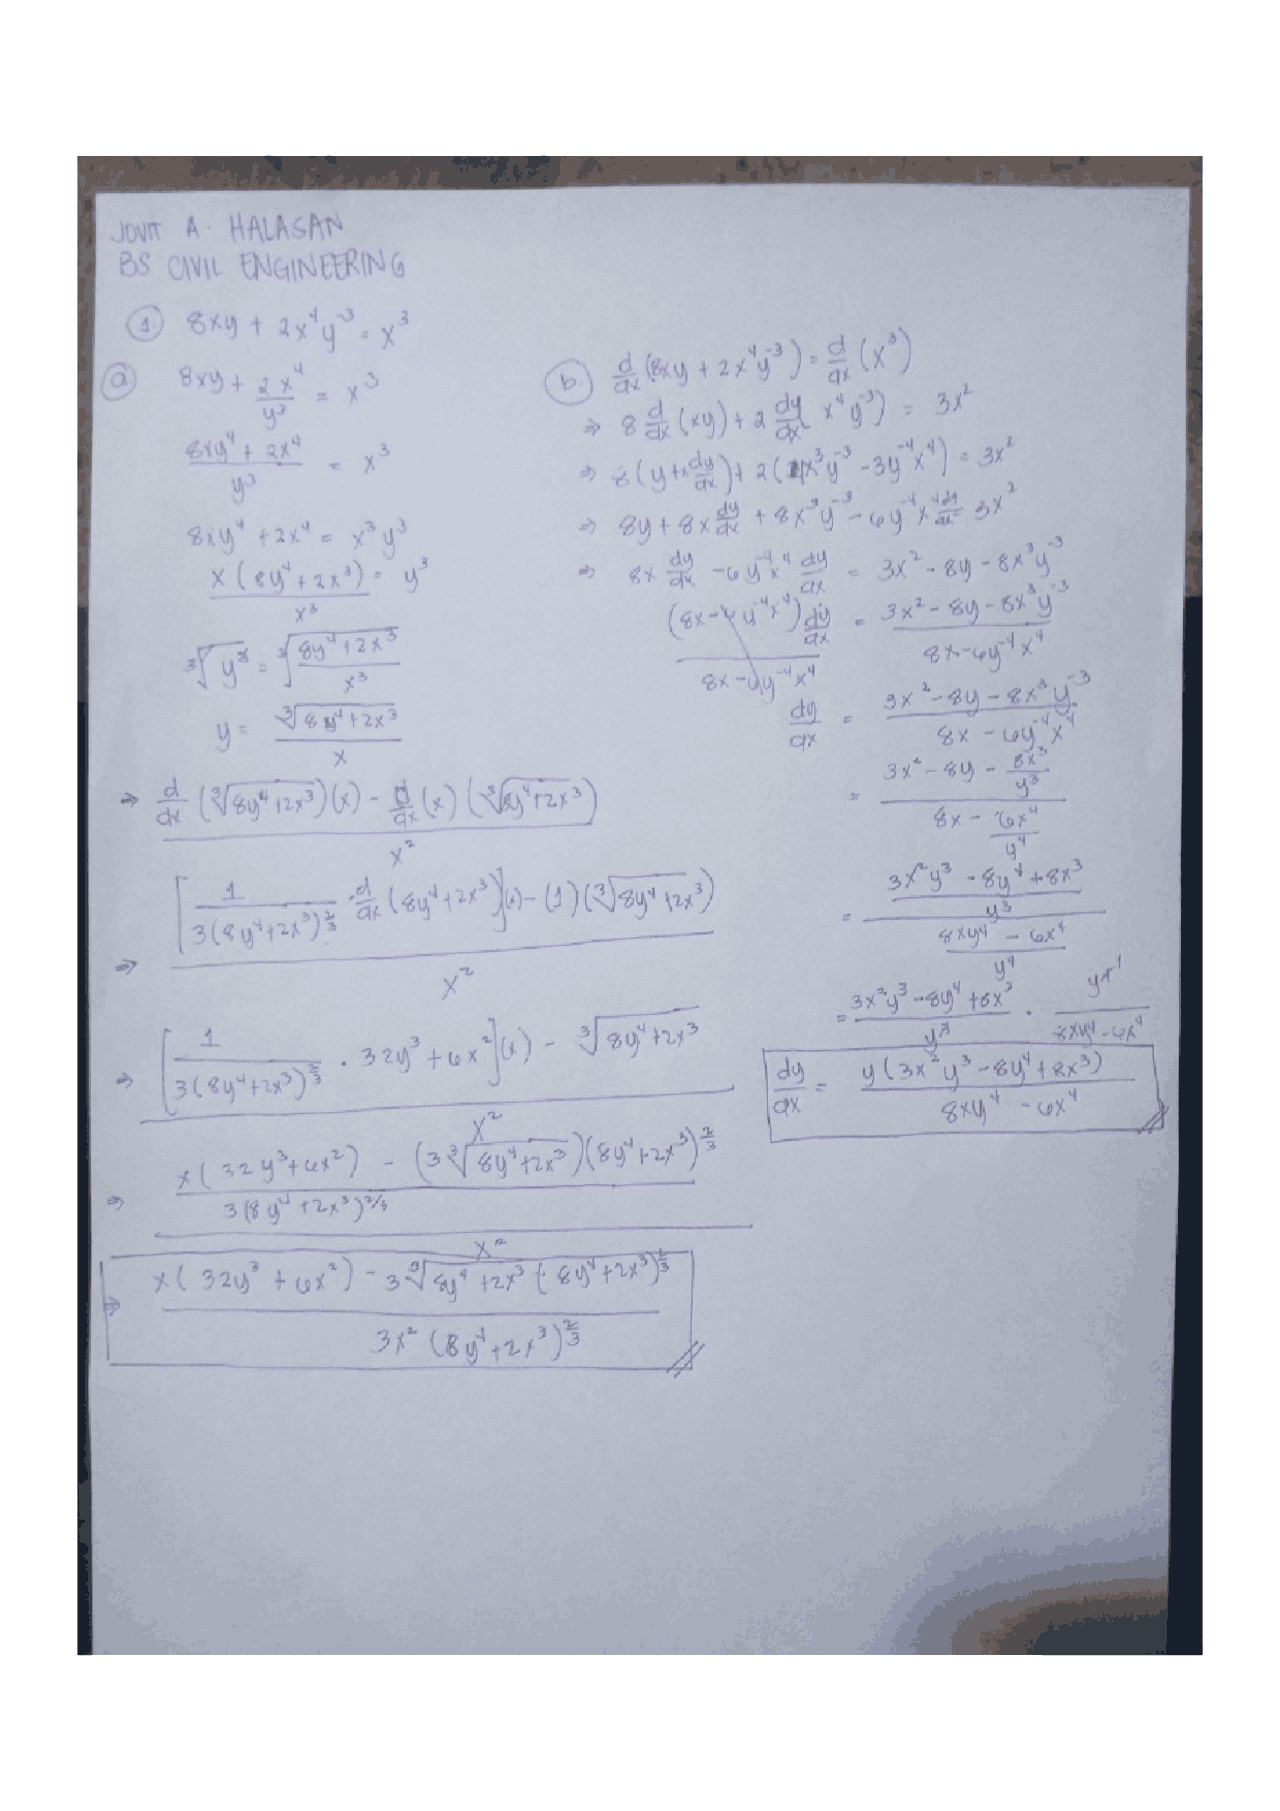 JOVIT A. HALASAN
BS CIVIL ENGINEERING
1. 8xy + 2x⁴y⁻³ = x³
a 8xy + 2x⁴/y³ = x³
(8xy⁴ + 2x⁴)/y³ = x³
8xy⁴ + 2x⁴ = x³y³
x(8y⁴ + 2x³)/x³ = y³
∛y³ = ∛((8y⁴+2x³)/x³)
y = ∛(8y⁴+2x³)/x
⇒ [d/dx (∛(8y⁴+2x³))(x) - d/dx (x)(∛(8y⁴+2x³))]/x²
⇒ {[1/(3(8y⁴+2x³)^(2/3)) · d/dx (8y⁴+2x³)](x) - (1)(∛(8y⁴+2x³))}/x²
⇒ {[1/(3(8y⁴+2x³)^(2/3)) · 32y³ + 6x²](x) - ∛(8y⁴+2x³)}/x²
⇒ {[x(32y³+6x²) - (3∛(8y⁴+2x³))(8y⁴+2x³)^(2/3)]/(3(8y⁴+2x³)^(2/3))}/x²
⇒ [x(32y³ + 6x²) - 3∛(8y⁴+2x³) (8y⁴+2x³)^(2/3)]/(3x²(8y⁴+2x³)^(2/3))
b. d/dx (8xy + 2x⁴y⁻³) = d/dx (x³)
⇒ 8 d/dx (xy) + 2 dy/dx x⁴y⁻³) = 3x²
⇒ 8(y + x dy/dx) + 2(4x³y⁻³ - 3y⁻⁴x⁴) = 3x²
⇒ 8y + 8x dy/dx + 8x³y⁻³ - 6y⁻⁴x⁴ dy/dx = 3x²
⇒ 8x dy/dx - 6y⁻⁴x⁴ dy/dx = 3x² - 8y - 8x³y⁻³
(8x - 6y⁻⁴x⁴) dy/dx / (8x - 6y⁻⁴x⁴) = (3x² - 8y - 8x³y⁻³)/(8x - 6y⁻⁴x⁴)
dy/dx = (3x² - 8y - 8x³y⁻³)/(8x - 6y⁻⁴x⁴)
= (3x² - 8y - 8x³/y³)/(8x - 6x⁴/y⁴)
= ((3x²y³ - 8y⁴ + 8x³)/y³)/((8xy⁴ - 6x⁴)/y⁴)
= (3x²y³ - 8y⁴ + 8x³)/y³ · y⁴/(8xy⁴ - 6x⁴)
dy/dx = y(3x²y³ - 8y⁴ + 8x³)/(8xy⁴ - 6x⁴)